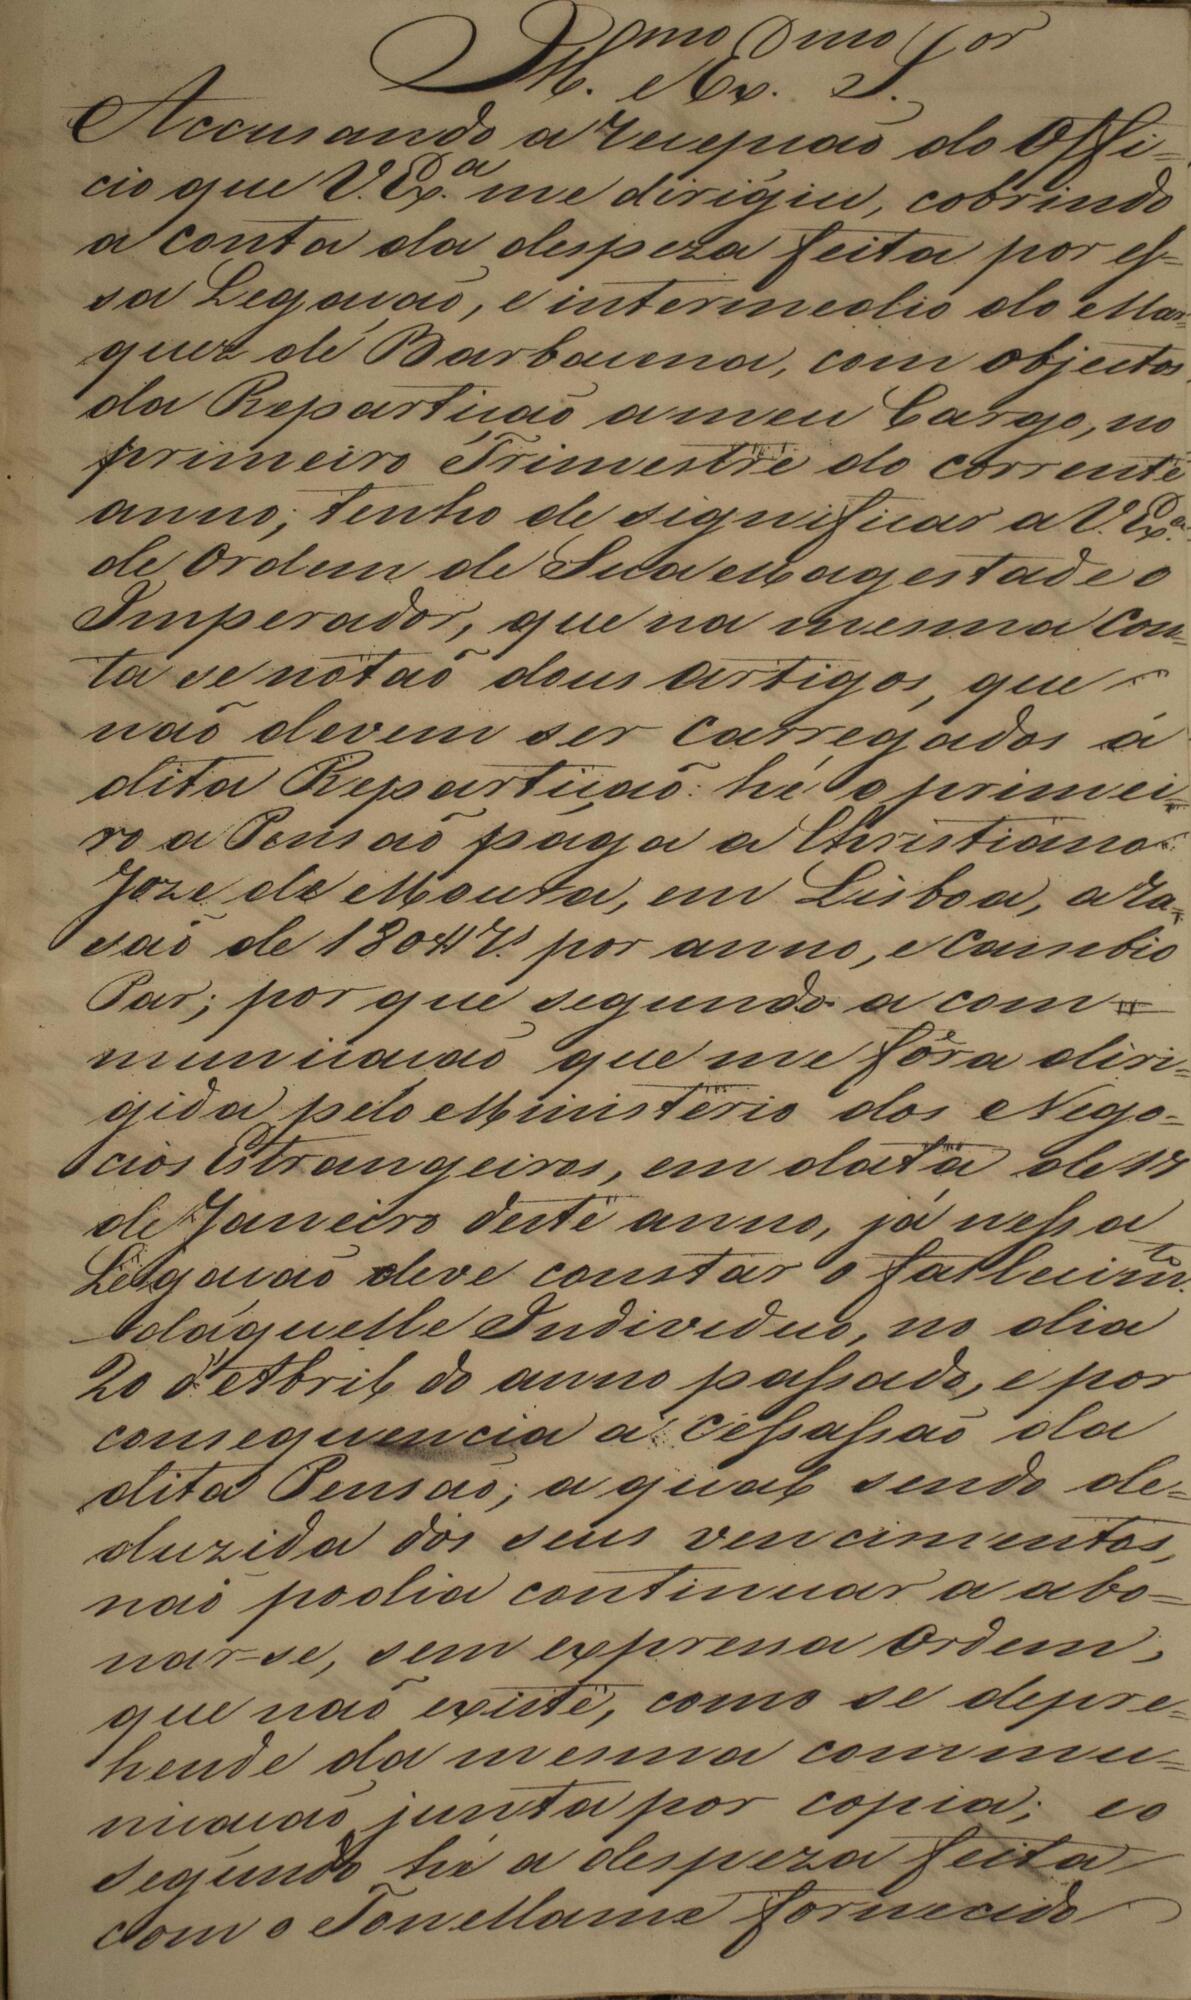 Ill.mo e Ex.mo S.or
Accusando a recepção do Offi-
cio que V. Ex.a me dirigiu, cobrindo
a conta da despeza feita por es-
sa Legação, e intermedio do Mar-
quez de Barbacena, com objectos
da Repartição a meu Cargo, no
primeiro Trimestre do corrente
anno; tenho de significar a V. Ex.a
de Ordem de Sua Magestade o
Imperador, que na mesma Con-
ta se notaõ dous artigos, que
naõ devem ser carregados á
dita Repartiçaõ: hé o primei-
ro a Pensaõ paga a Christiano
Joze de Moura, em Lisboa, a ra-
saõ de 180$ r.s por anno, e Cambio
Par; por que segundo a com-
municaçaõ que me fôra diri-
gida pelo Ministerio dos Nego-
cios Estrangeiros, em data de 17
de Janeiro deste anno, já nessa
Legaçaõ deve constar o fallecim.to
d'aquelle Individuo, no dia
20 d'Abril do anno passado, e por
consequencia a cessassaõ da
dita Pensaõ; a qual sendo de-
duzida dos seus vencimentos,
naõ podia continuar a abo-
nar-se, sem expressa Ordem,
que naõ existe, como se depre-
hende da mesma commu-
nicaçaõ junta por copia; e o
segundo hé a despeza feita
com o Tonellame fornecido